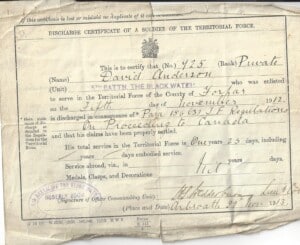 if this certificate is lost or mislaid no duplicate of it can
DISCHARGE CERTIFICATE OF A SOLDIER OF THE TERRITORIAL FORCE.
This is to certify that (No.) 425 (Rank) Private
(Name) David Anderson
(Unit) 5TH BATTN. THE BLACK WATCH who was enlisted
to serve in the Territorial Force of the County of Forfar
on the Fifth day of November 1912
is discharged in consequence of Para 156 Regulations
On Proceeding to Canada
and that his claims have been properly settled.
His total service in the Territorial Force is One years 25 days, including
years days embodied service.
Service abroad, viz., in years
Medals, Clasps, and Decorations Nil
(Signature of Officer Commanding Unit)
(Place and Date) Arbroath 29 Nov 1913